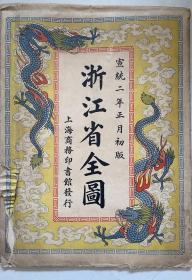 宣統二年正月初版
浙江省全圖
上海商務印書館發行